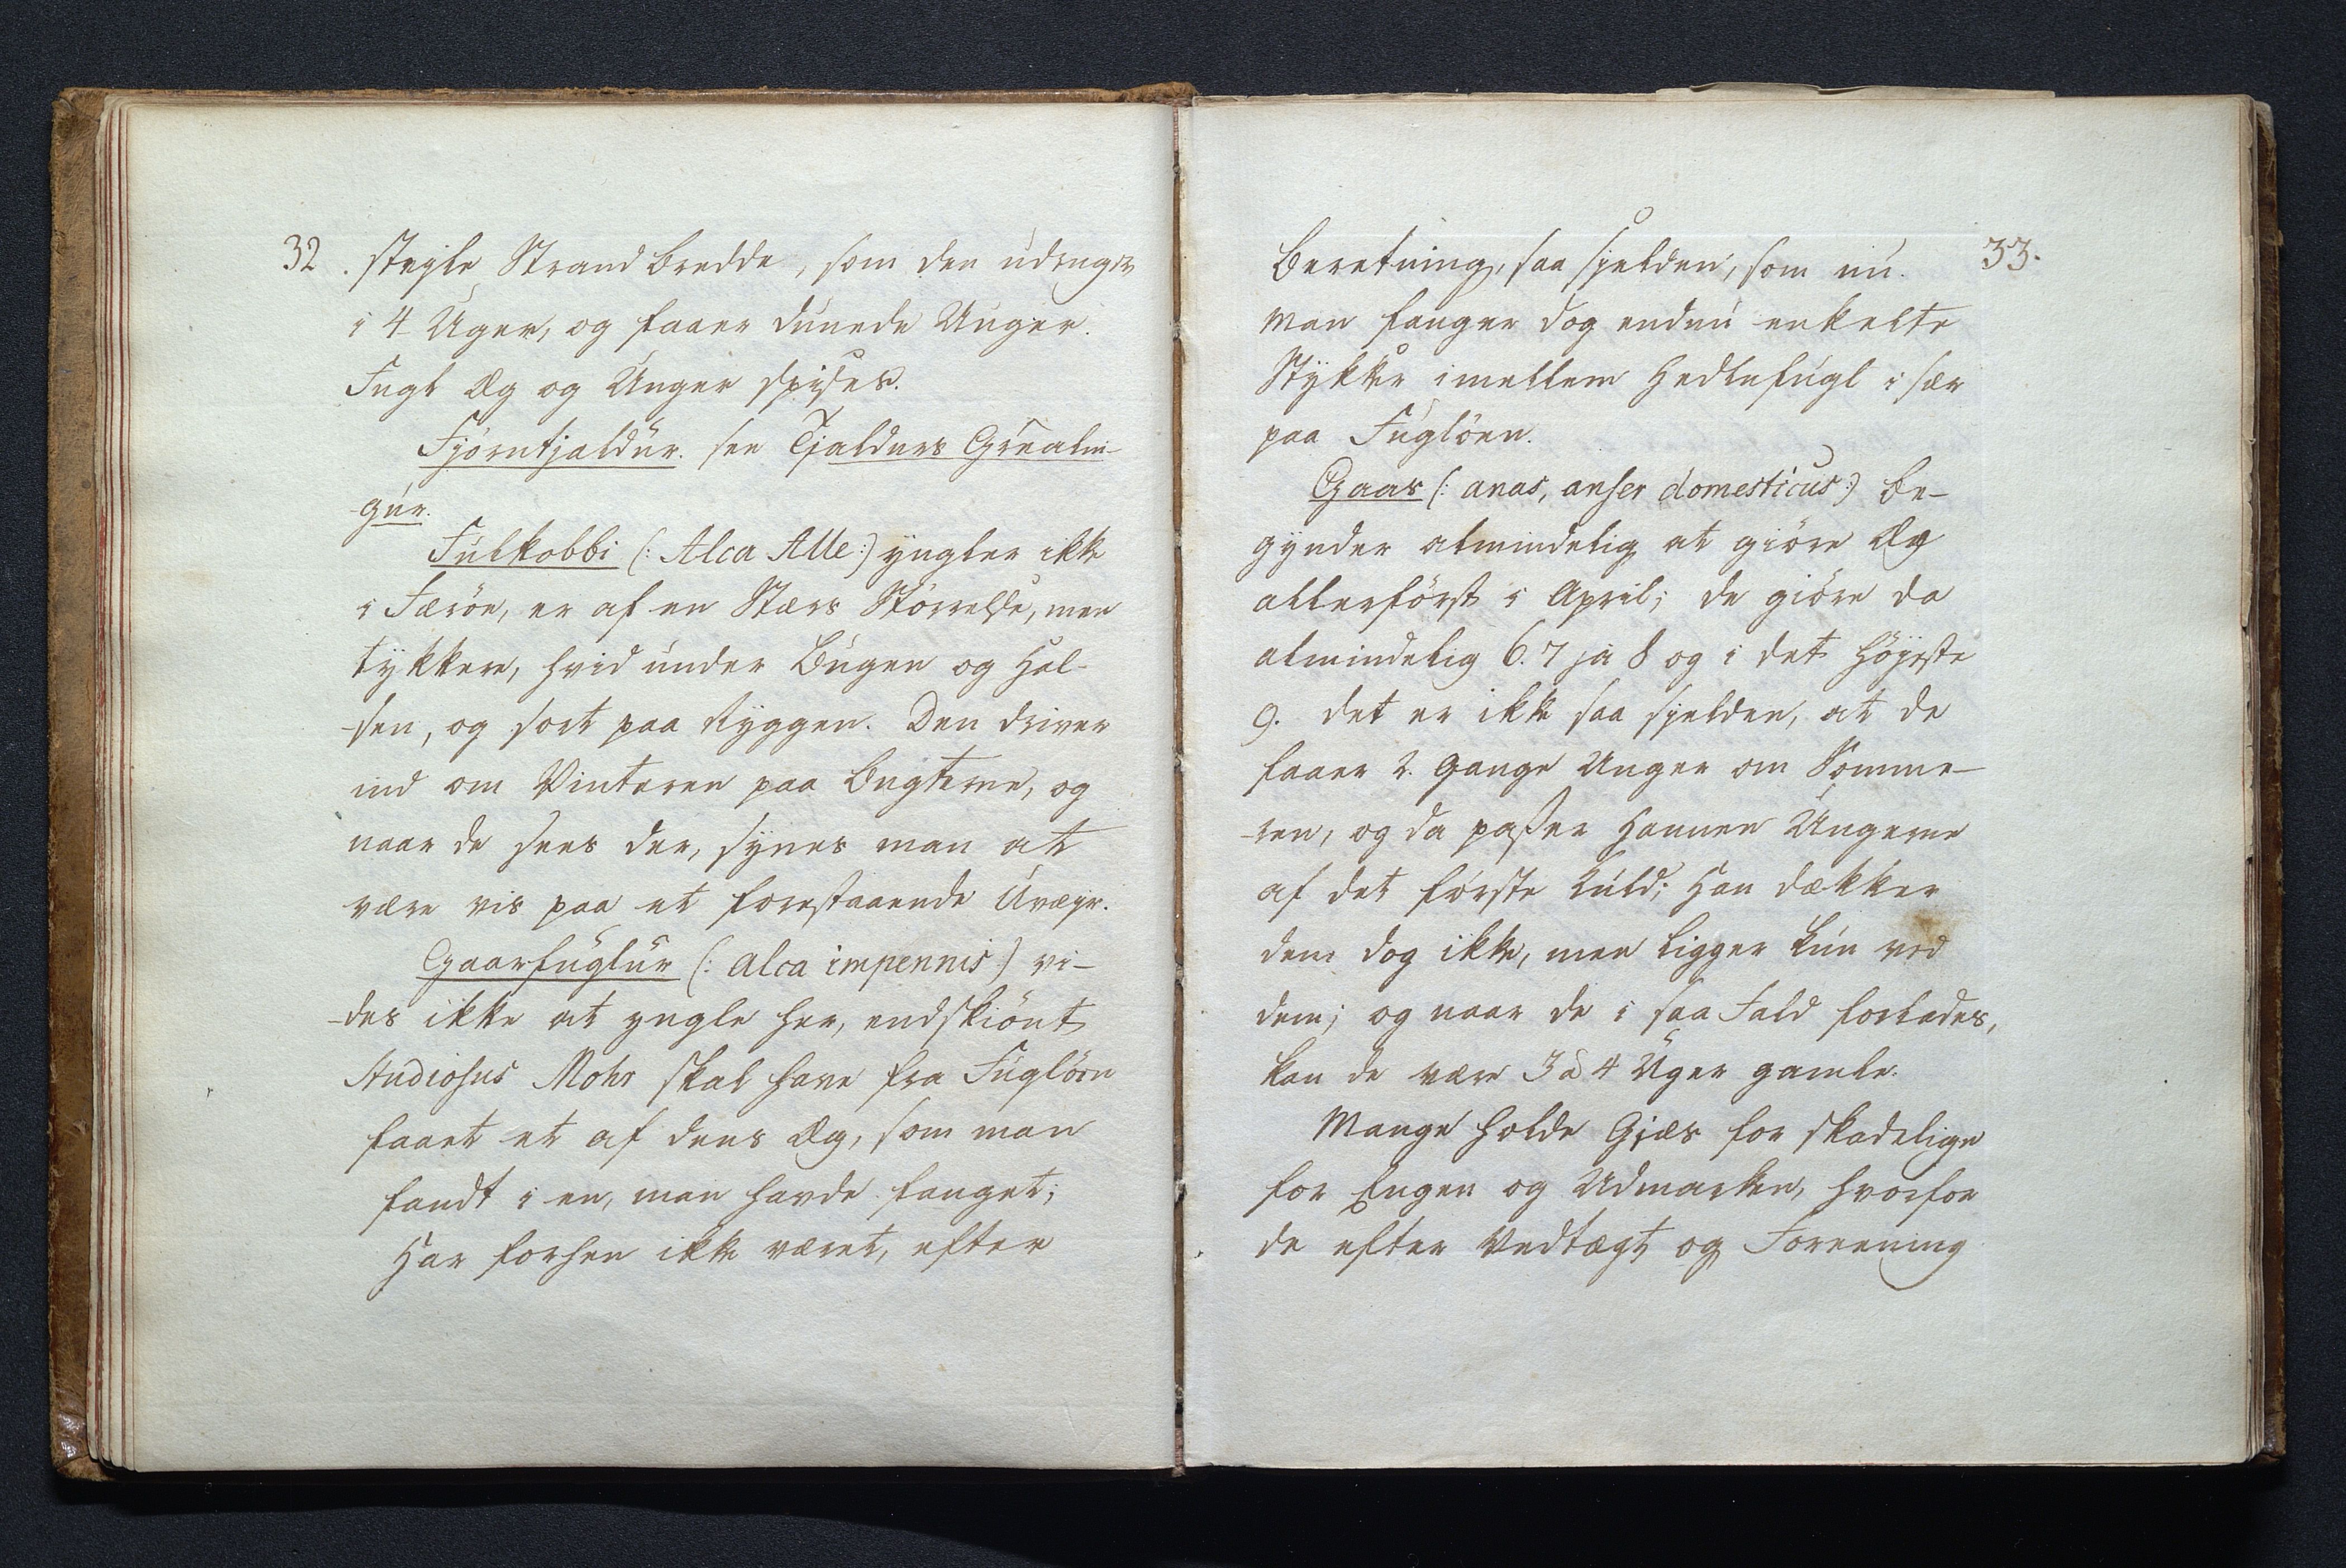 32. steyle Strandbredde, som den udruger
i 4 Uger, og faaer dunede Unger.
Fugl Æg og Unger spises.
Fjørutjaldur. see Tjaldurs Grealin-
gur.
Fulkobbi (: Alca Alle:) yngler ikke
i Færøe, er af en Stærs Størrelse, men
tykkere, hvid under Bugen og Hal-
-sen, og sort paa Ryggen. Den driver
ind om Vinteren paa Bugterne, og
naar de sees der, synes man at
være vis paa et forestaaende Uvejr.
Gaarfuglur (: alca impennis:) vi-
-des ikke at yngle her, endskiønt
Studiosus Mohr skal have fra Fugløen
faaet et af dens Æg, som man
fandt i en, man havde fanget;
Har forhen ikke været, efter
Beretning, saa sjelden, som nu. 33.
Man fanger dog endnu enkelte
Stykker imellem Hedlefugl i sær
paa Fugløen.
Gaas (: anas, anser domesticus:) be-
gynder almindelig at giøre Æg
allerførst i April; de giøre da
almindelig 6. 7 ja 8 og i det høyeste
9. det er ikke saa sjelden, at de
faaer 2. Gange Unger om Somme-
-ren, og da passer Hannen Ungerne
af det første Kuld; Han dækker
dem dog ikke, men ligger kun ved
dem; og naar de i saa Fald forlades,
kan de være 3 à 4 Uger gamle.
Mange holde Gjæs for skadelige
for Engen og Udmarken, hvorfor
de efter Vedtægt og Foreening